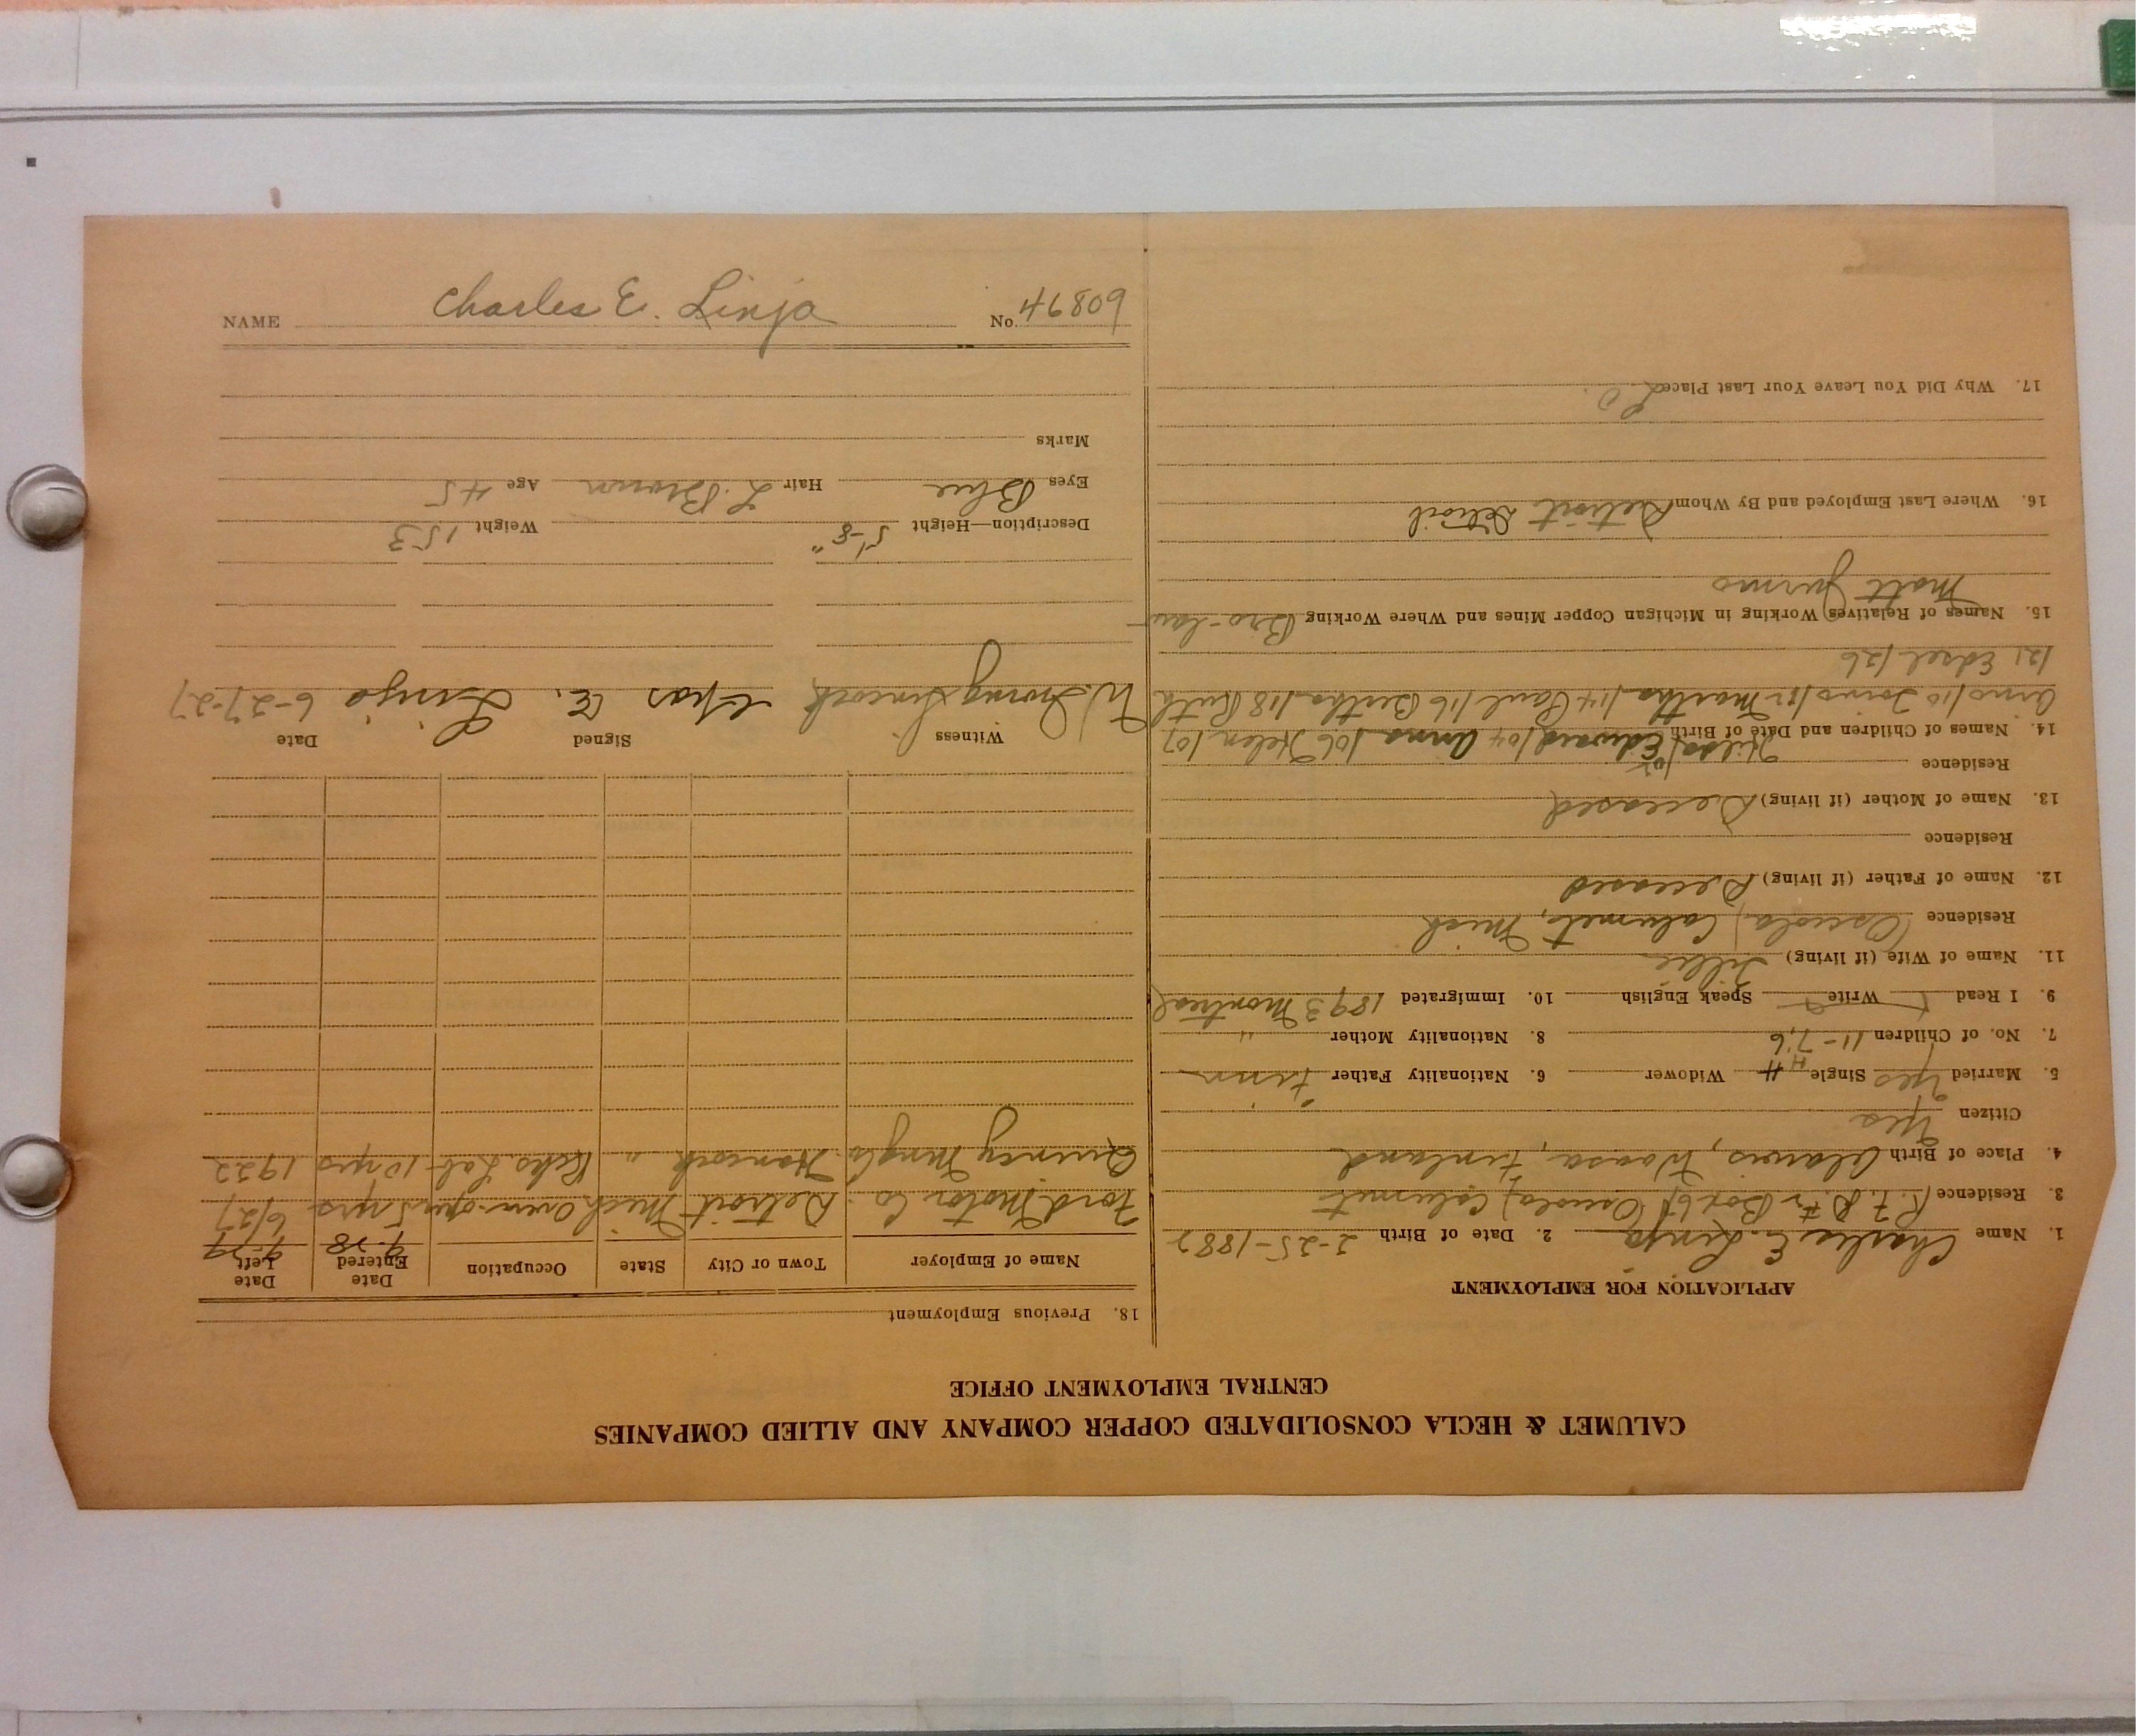 NAME Charles E. Linja No. 46809
CALUMET & HECLA CONSOLIDATED COPPER COMPANY AND ALLIED COMPANIES
CENTRAL EMPLOYMENT OFFICE
APPLICATION FOR EMPLOYMENT
1. Name Charlie E. Linja 2. Date of Birth 2-25-1882
3. Residence R.F.D. #1 Box 61 Osceola, Calumet
4. Place of Birth Alavus, Waasa, Finland
Citizen Yes
5. Married Yes Single Widower 6. Nationality Father Finn
7. No. of Children 11-7,6 8. Nationality Mother "
9. I Read Write Speak English 10. Immigrated 1893 Montreal
11. Name of Wife (if living) Tillie
Residence Osceola, Calumet, Mich
12. Name of Father (if living) Deceased
Residence
13. Name of Mother (if living) Deceased
Residence
14. Names of Children and Date of Birth Hilda/02 Edward/04 Anna/06 Helen/07
Arno/10 Toivo/12 Martha/14 Paul/16 Bertha/18 Ruth
/21 Edsel/26
15. Names of Relatives Working in Michigan Copper Mines and Where Working Bro-law
Matt Jurmo
16. Where Last Employed and By Whom Detroit Detroit
17. Why Did You Leave Your Last Place L O.
18. Previous Employment
Name of Employer Town or City State Occupation Date Entered Date Left
9-28 9-29
Ford Motor Co. Detroit Mich Oven-oper 5 yrs. 6/27
Quincy Mng Co. Hancock " Rcks. Lab 10 yrs 1922
Witness Signed Date
W. Irving Hincock Chas E. Linja 6-27-27
Description—Height 5'-8" Weight 153
Eyes Blue Hair L. Brown Age 45
Marks